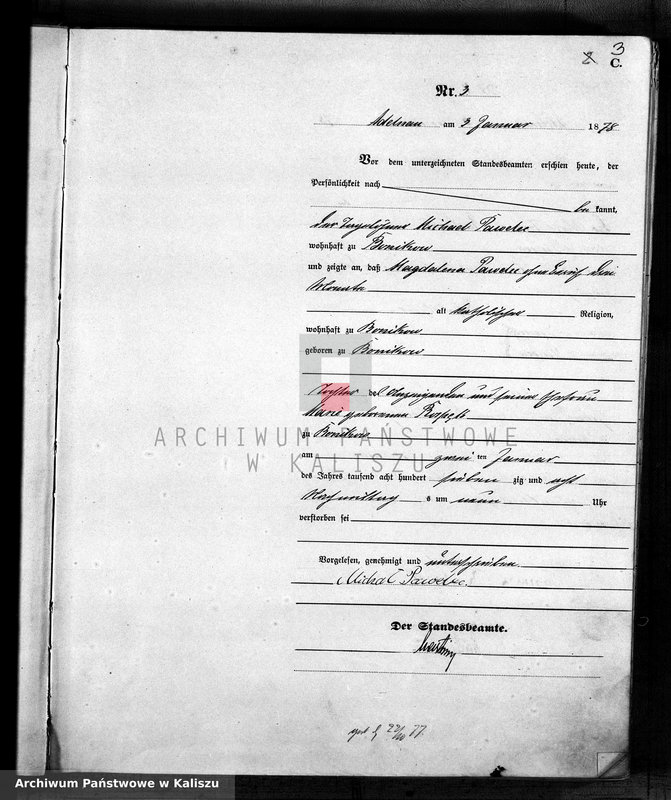 3
C.
Nr. 3
Adelnau am 3 Januar 1878
Vor dem unterzeichneten Standesbeamten erschien heute, der
Persönlichkeit nach
be kannt,
der Tagelöhner Michael Pawelec
wohnhaft zu Bonikow
und zeigte an, daß Magdalena Pawelec ohne Beruf drei
Monate
alt katholischer Religion,
wohnhaft zu Bonikow
geboren zu Bonikow
Tochter des Anzeigenden und seiner Ehefrau
Marie geborenen
zu Bonikow
ARCHIWUM PAŃSTWOWE
W KALISZU
am zwei ten Januar
des Jahres tausend acht hundert sieben zig und acht
Nachmittag s um neun Uhr
verstorben sei
Vorgelesen, genehmigt und unterschrieben
Michał Pawelec
Der Standesbeamte.
22/10 77.
Archiwum Państwowe w Kaliszu